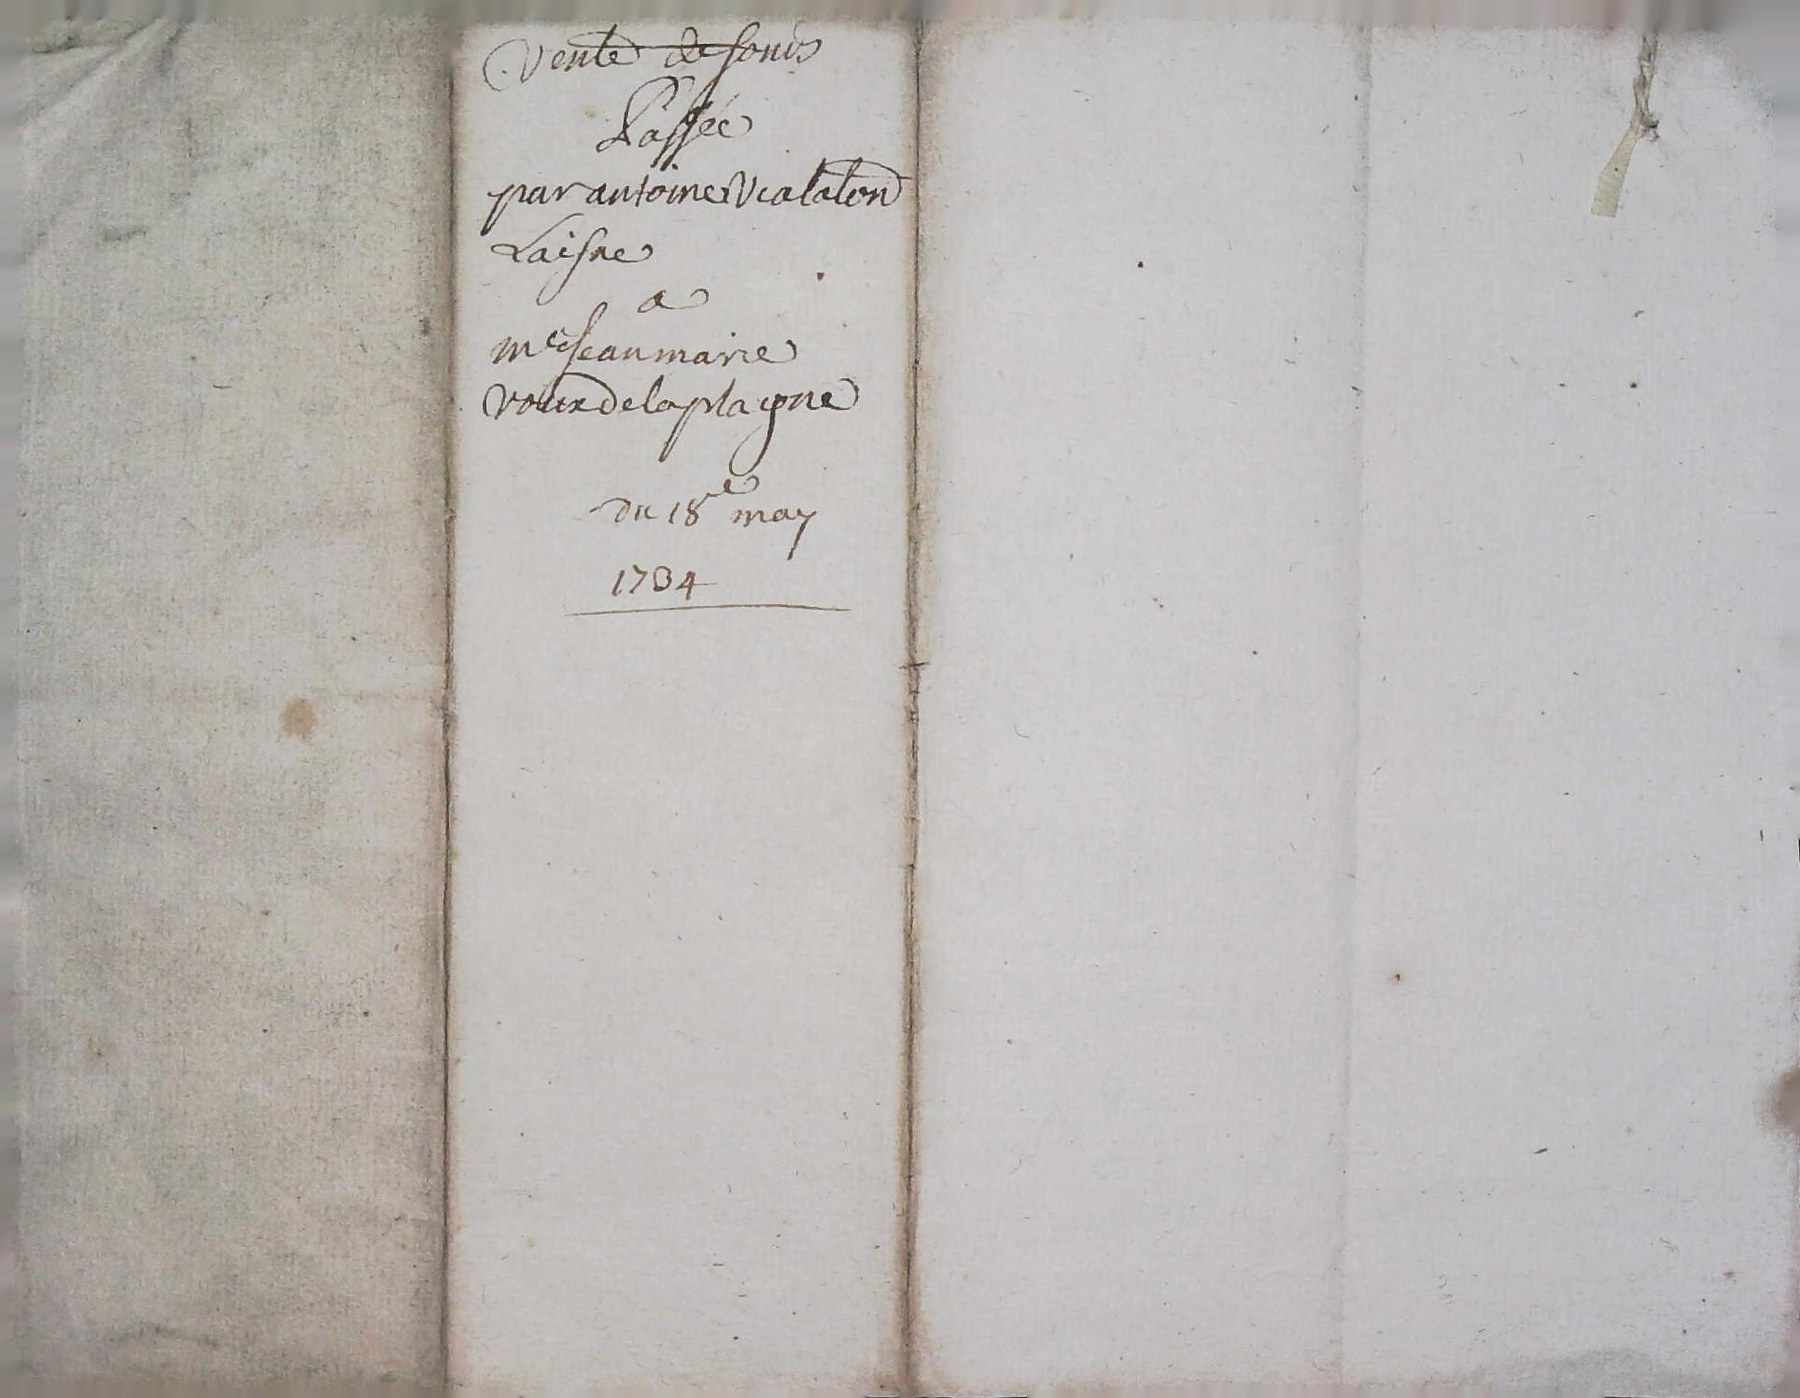 Vente de fonds
Passée
par antoine Vialaton
Laisne
a
me Jean marie
Vour de la plagne
du 18e may
1734